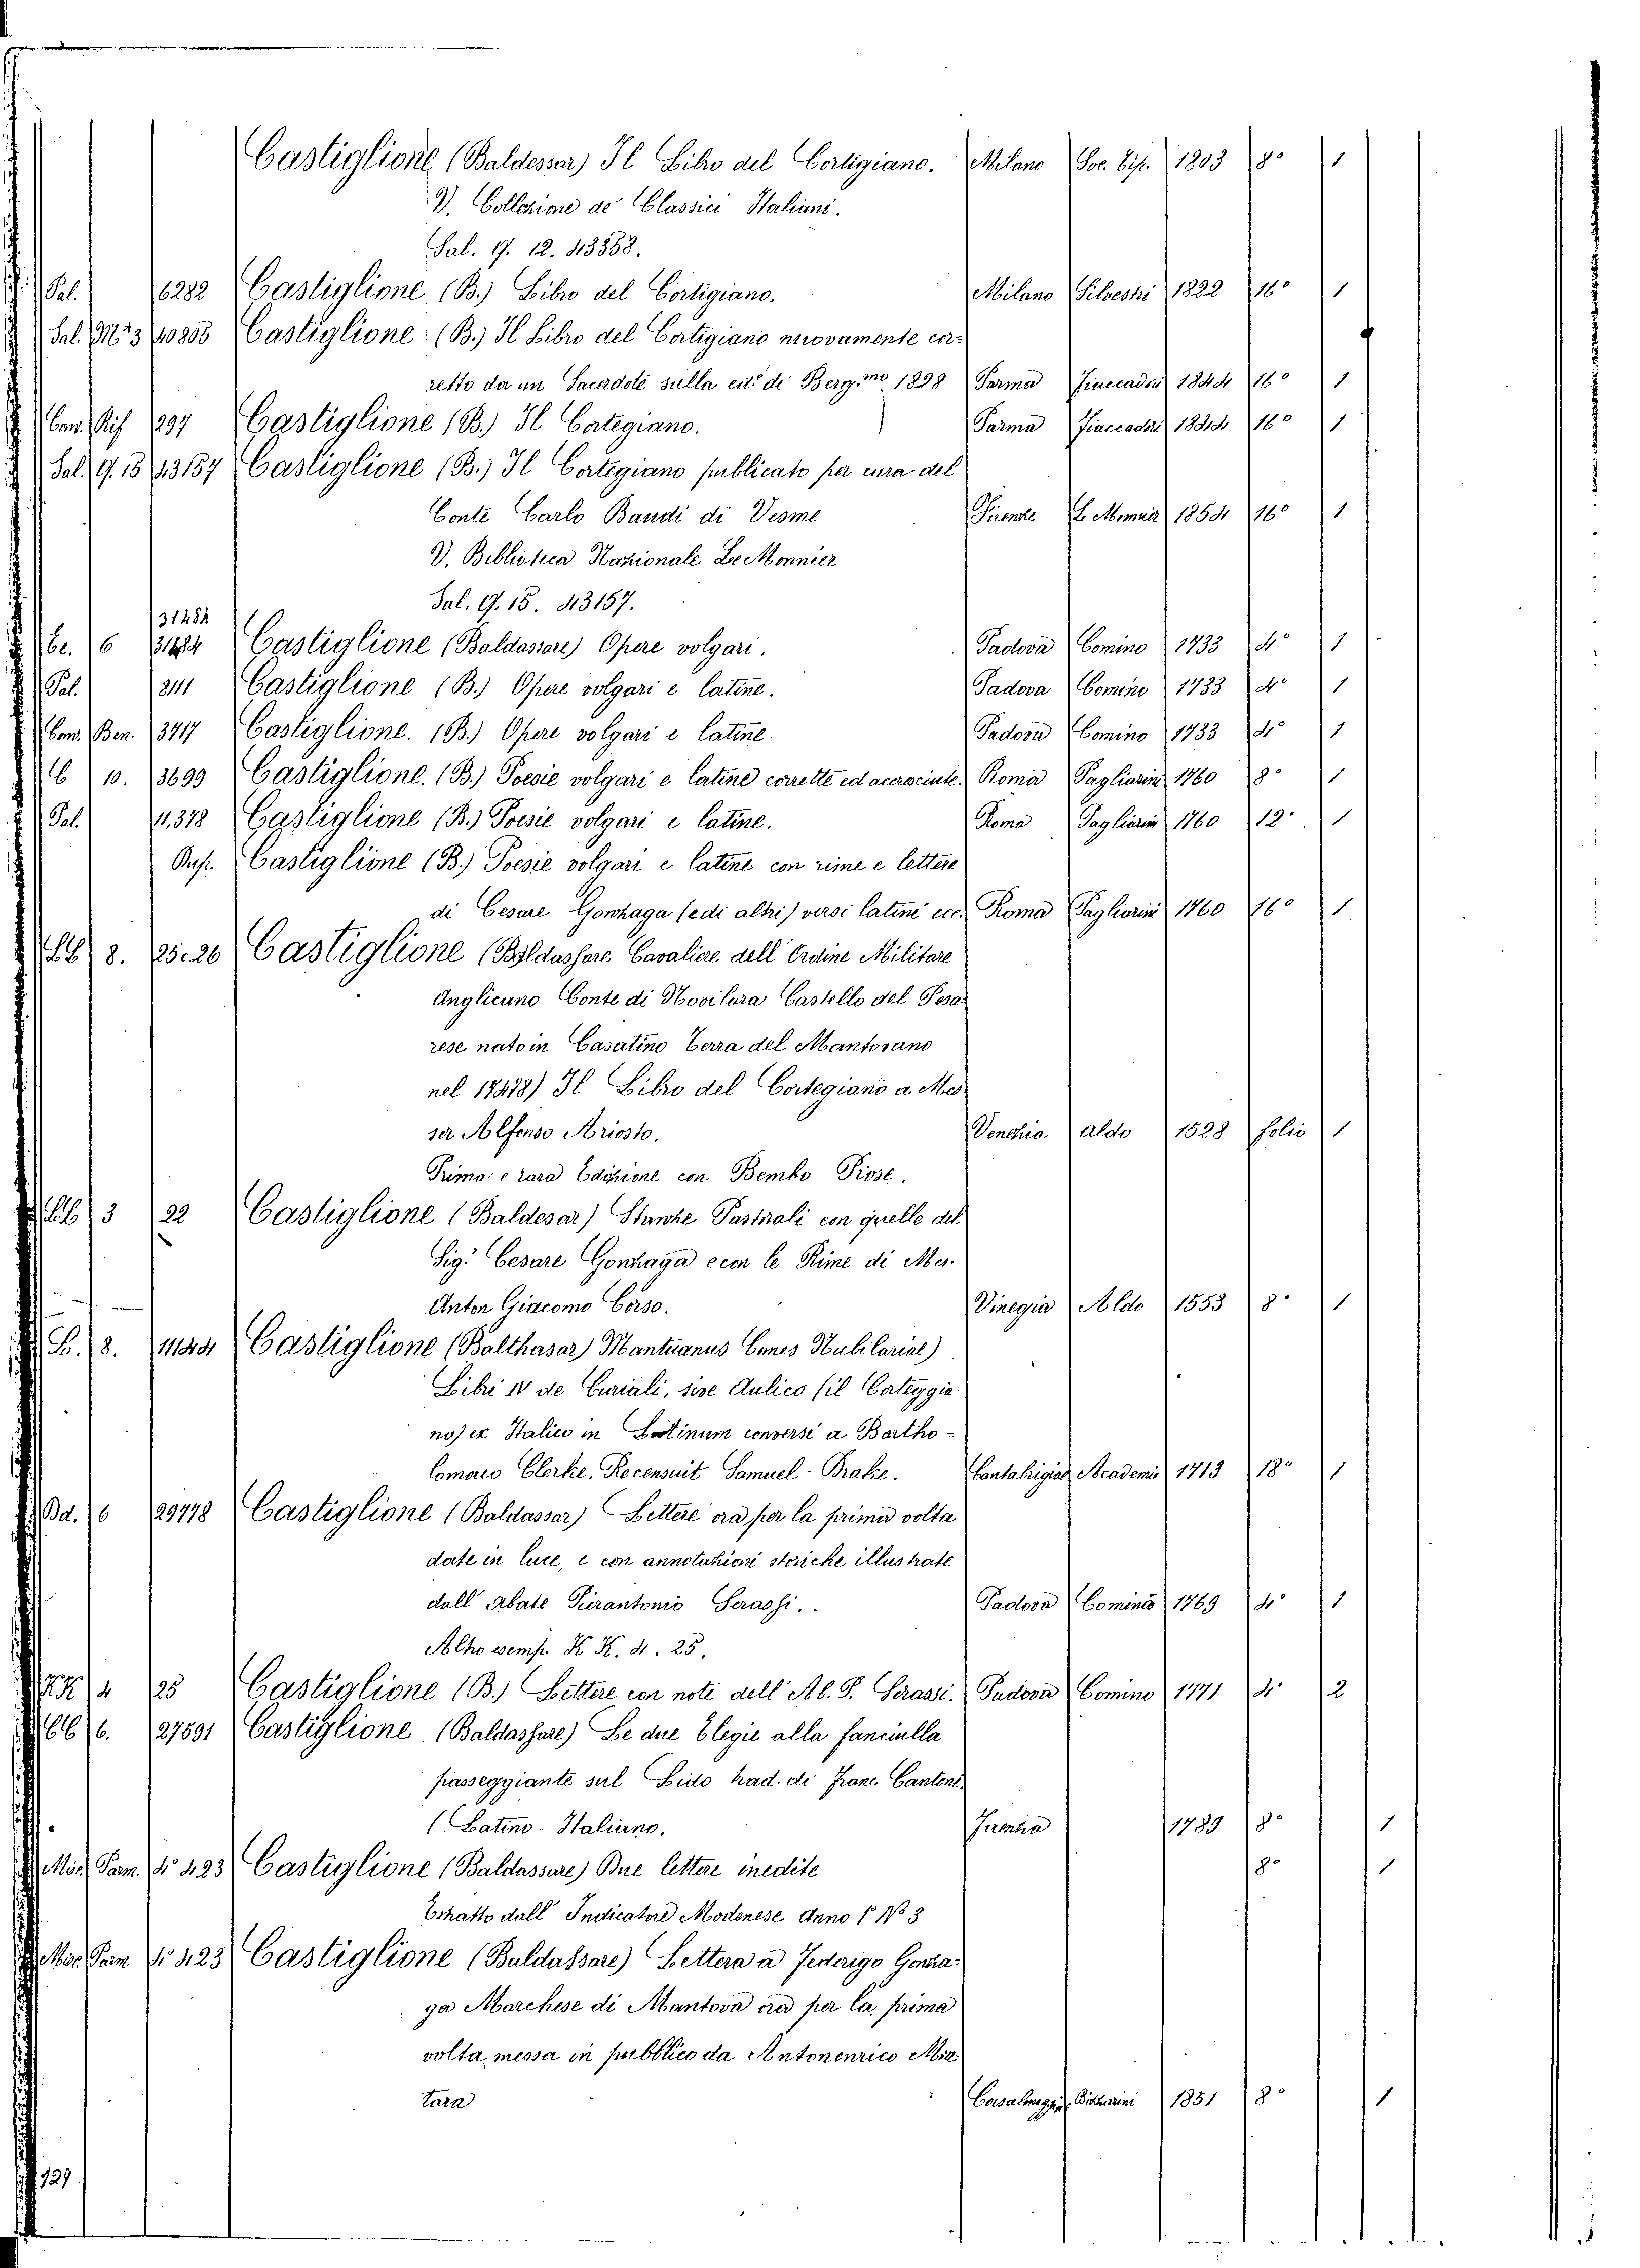 Castiglione (Baldessar) Il Libro del Cortigiano. Milano Soc. Tip. 1803 8º 1
V. Collezione de' Classici Italiani.
Sal. 17. 12. 43358.
Pal. 6282 Castiglione (B.) Libro del Cortigiano. Milano Silvestri 1822 16º 1
Sal. M23 40805 Castiglione (B.) Il Libro del Cortigiano nuovamente cor-
retto da un Sacerdote sulla ediz. di Berg.mo 1828 Parma Fiaccadori 1844 16º 1
Con. Rif 297 Castiglione (B.) Il Cortegiano. Parma Fiaccadori 1844 16º 1
Sal. 9. 15 43157 Castiglione (B.) Il Cortegiano publicato per cura del
Conte Carlo Baudi di Vesme Firenze Le Monnier 1854 16º 1
V. Biblioteca Nazionale Le Monnier
Sal. 9. 15. 43157.
31484
Cc. 6 31484 Castiglione (Baldassare) Opere volgari. Padova Comino 1733 4º 1
Pal. 2111 Castiglione (B.) Opere volgari e latine. Padova Comino 1733 4º 1
Con. Ben. 3717 Castiglione. (B.) Opere volgari e latine. Padova Comino 1733 4º 1
C 10. 3699 Castiglione. (B.) Poesie volgari e latine corrette ed accresciute. Roma Pagliarini 1760 8º 1
Pal. 11,378 Castiglione (B.) Poesie volgari e latine. Roma Pagliarini 1760 12º 1
Dup. Castiglione (B.) Poesie volgari e latine con rime e lettere
di Cesare Gonzaga (e di altri) versi latini ecc. Roma Pagliarini 1760 16º 1
8. 25.26 Castiglione (Baldassare Cavaliere dell' Ordine Militare
Anglicano Conte di Novilara Castello del Pesa-
rese nato in Casatino Terra del Mantovano
nel 1478) Il Libro del Cortegiano a Mes-
ser Alfonso Ariosto. Venezia. Aldo 1528 folio 1
Prima e rara Edizione con Bembo - Prose.
3 22 Castiglione (Baldesar) Stanze Pastorali con quelle del
Sig.r Cesare Gonzaga e con le Rime di Mes.
Anton Giacomo Corso. Vinegia Aldo 1553 8º 1
B. 8. 11144 Castiglione (Balthasar) Mantuanus Comes Nubilariae)
Libri IV de Curiali, sive Aulico (il Corteggia-
no) ex Italico in Latinum conversi a Bartho-
lomaeo Clerke. Recensuit Samuel - Drake. Cantabrigiae Academia 1713 18º 1
Bd. 6 29778 Castiglione (Baldassar) Lettere ora per la prima volta
date in luce, e con annotazioni storiche illustrate
dall' Abate Pierantonio Serassi. Padova Comino 1769 4º 1
Altro esemp. K K. 4. 25.
KK 4 25 Castiglione (B.) Lettere con note dell' Ab. P. Serassi. Padova Comino 1771 4º 2
CC 6. 27591 Castiglione (Baldassare) Le due Elegie alla fanciulla
passeggiante sul Lido trad. di Franc. Cantoni.
(Latino - Italiano. Faenza 1789 8º 1
Misc. Parm. 4º 423 Castiglione (Baldassare) Due lettere inedite 8º 1
Estratto dall' Indicatore Modenese Anno Iº Nº 3
Misc. Parm. 4º 423 Castiglione (Baldassare) Lettera a Federigo Gonza-
ga Marchese di Mantova ora per la prima
volta messa in pubblico da Antonenrico Mor-
tara Casalmagg. 1851 8º 1
129